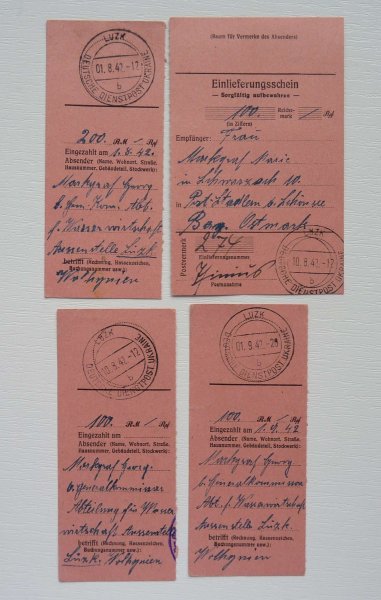 LUZK
DEUTSCHE DIENSTPOST UKRAINE
01.8.42.-12
b
200. RM / Rpf
Eingezahlt am 1.8.42.
Absender (Name, Wohnort, Straße,
Hausnummer, Gebäudeteil, Stockwerk):
Markgraf Georg
b. Gen. Kom. Abt.
f. Wasserwirtschaft
Aussenstelle Luzk
betrifft (Rechnung, Kassenzeichen,
Buchungsnummer usw.):
Wolhynien
(Raum für Vermerke des Absenders)
Einlieferungsschein
— Sorgfältig aufbewahren —
100. Reichsmark / Rpf
(in Ziffern)
Empfänger: Frau
Markgraf Marie
in 10.
in Post
Bay. Ostmark
274
Einlieferungsnummer
Postvermerk
Postannahme
LUZK
DEUTSCHE DIENSTPOST UKRAINE
10.8.42.-12
b
LUZK
DEUTSCHE DIENSTPOST UKRAINE
10.8.42.-12
b
100. RM / Rpf
Eingezahlt am
Absender (Name, Wohnort, Straße,
Hausnummer, Gebäudeteil, Stockwerk):
Markgraf Georg
b. Generalkommissar
Abteilung für Wasser
wirtschaft Aussenstelle
betrifft (Rechnung, Kassenzeichen,
Buchungsnummer usw.):
Luzk. Wolhynien
LUZK
DEUTSCHE DIENSTPOST UKRAINE
01.9.42.-20
b
100. RM / Rpf
Eingezahlt am 1.9.42
Absender (Name, Wohnort, Straße,
Hausnummer, Gebäudeteil, Stockwerk):
Markgraf Georg
b. Generalkommissar
Abt. f. Wasserwirtschaft
Aussenstelle Luzk.
betrifft (Rechnung, Kassenzeichen,
Buchungsnummer usw.):
Wolhynien